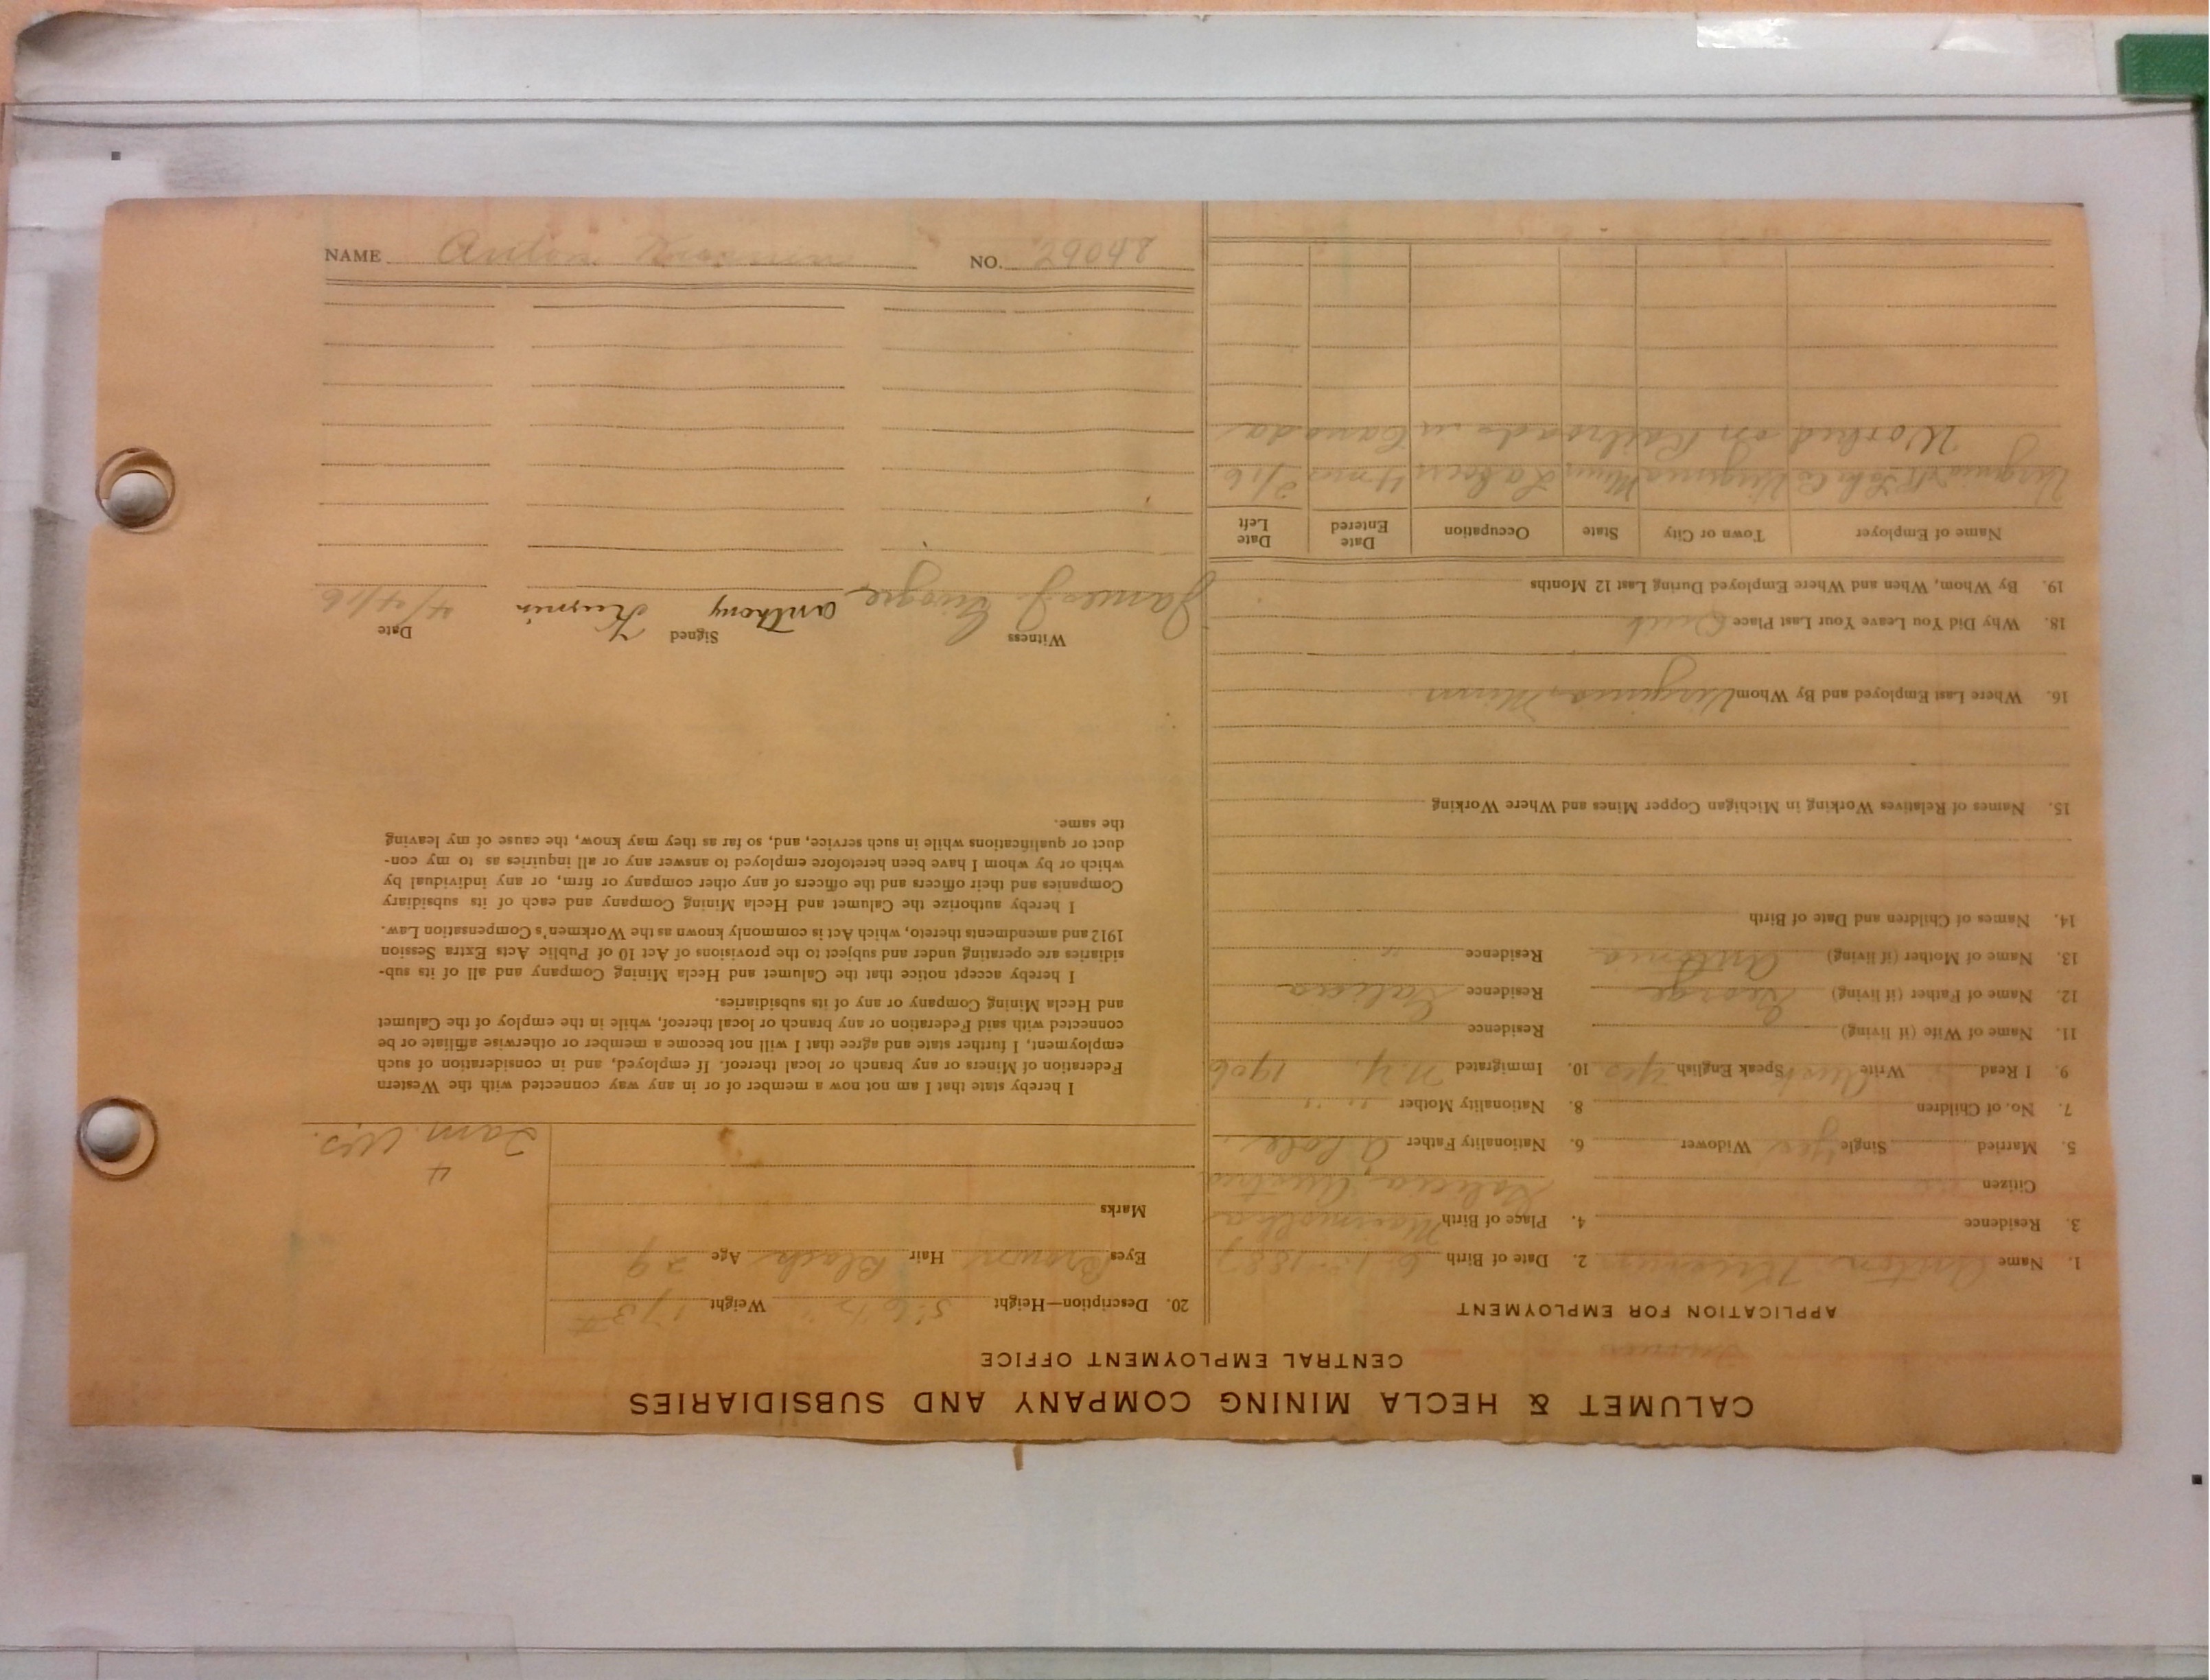 CALUMET & HECLA MINING COMPANY AND SUBSIDIARIES
CENTRAL EMPLOYMENT OFFICE
APPLICATION FOR EMPLOYMENT
1. Name Anton 2. Date of Birth 1887
3. Residence 4. Place of Birth
Citizen Galicia, Austria
5. Married Single yes Widower 6. Nationality Father Pole
7. No. of Children 8. Nationality Mother " "
9. I Read Write Speak English yes 10. Immigrated N.Y. 1906
11. Name of Wife (if living) Residence
12. Name of Father (if living) George Residence Galicia
13. Name of Mother (if living) Antonia Residence "
14. Names of Children and Date of Birth
15. Names of Relatives Working in Michigan Copper Mines and Where Working
16. Where Last Employed and By Whom Virginia, Minn
18. Why Did You Leave Your Last Place Quit
19. By Whom, When and Where Employed During Last 12 Months
Name of Employer Town or City State Occupation Date Entered Date Left
Virginia & Lake Co Virginia Minn Laborer 4 mos 3/16
Worked on Railroads in Canada
20. Description—Height 5' 6 1/2" Weight 173 #
Eyes Brown Hair Black Age 29
Marks
4
I hereby state that I am not now a member of or in any way connected with the Western
Federation of Miners or any branch or local thereof. If employed, and in consideration of such
employment, I further state and agree that I will not become a member or otherwise affiliate or be
connected with said Federation or any branch or local thereof, while in the employ of the Calumet
and Hecla Mining Company or any of its subsidiaries.
I hereby accept notice that the Calumet and Hecla Mining Company and all of its sub-
sidiaries are operating under and subject to the provisions of Act 10 of Public Acts Extra Session
1912 and amendments thereto, which Act is commonly known as the Workmen's Compensation Law.
I hereby authorize the Calumet and Hecla Mining Company and each of its subsidiary
Companies and their officers and the officers of any other company or firm, or any individual by
which or by whom I have been heretofore employed to answer any or all inquiries as to my con-
duct or qualifications while in such service, and, so far as they may know, the cause of my leaving
the same.
Witness Signed Date
James J. anthony 4/4/16
NAME Anton NO. 29048